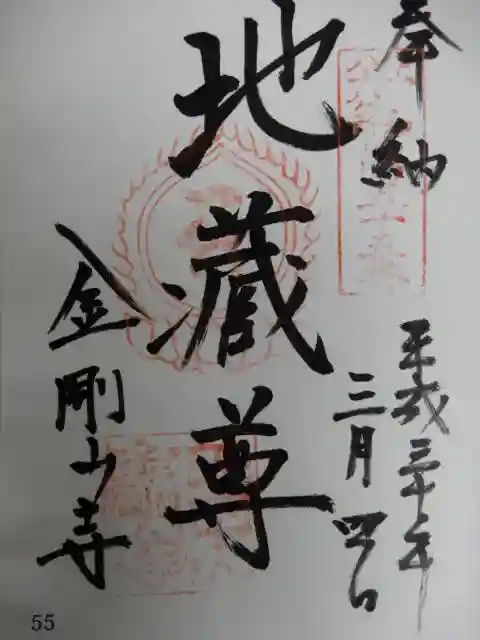 奉納
平成三十年
三月四日
地蔵尊
金剛山寺
55